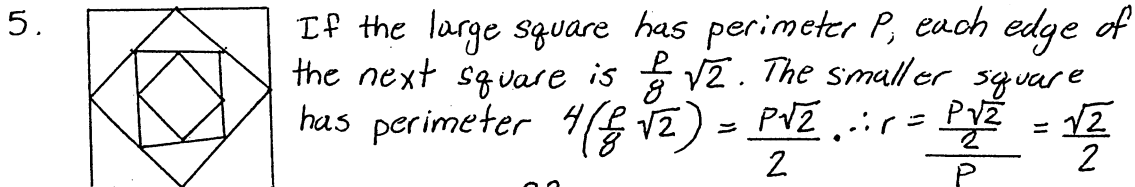 5. If the large square has perimeter P, each edge of
the next square is P/8 √2. The smaller square
has perimeter 4(P/8 √2) = P√2/2 .∴ r = (P√2/2)/P = √2/2